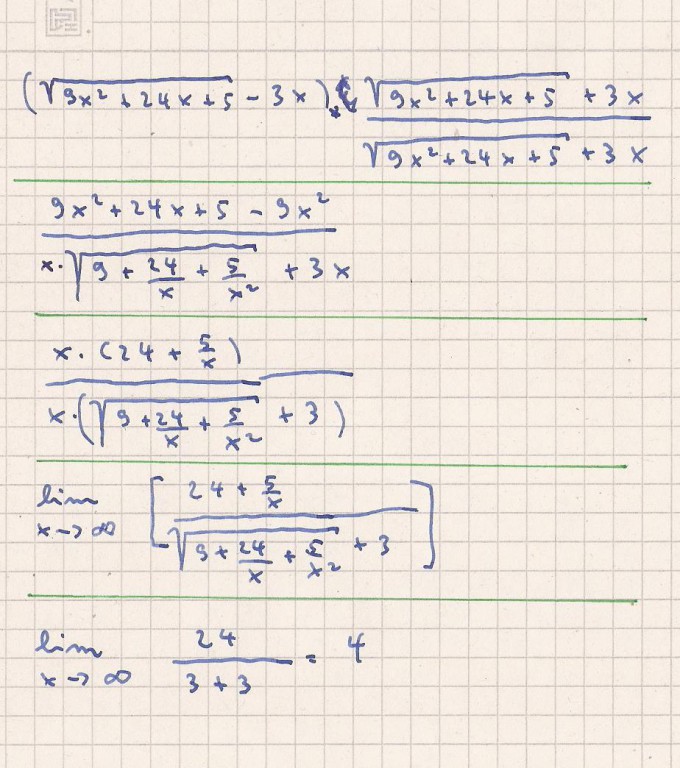 (√(9x² + 24x + 5) - 3x) · (√(9x² + 24x + 5) + 3x) / (√(9x² + 24x + 5) + 3x)
(9x² + 24x + 5 - 9x²) / (x · √(9 + 24/x + 5/x²) + 3x)
(x · (24 + 5/x)) / (x · (√(9 + 24/x + 5/x²) + 3))
lim x→∞ [(24 + 5/x) / (√(9 + 24/x + 5/x²) + 3)]
lim x→∞ 24 / (3 + 3) = 4